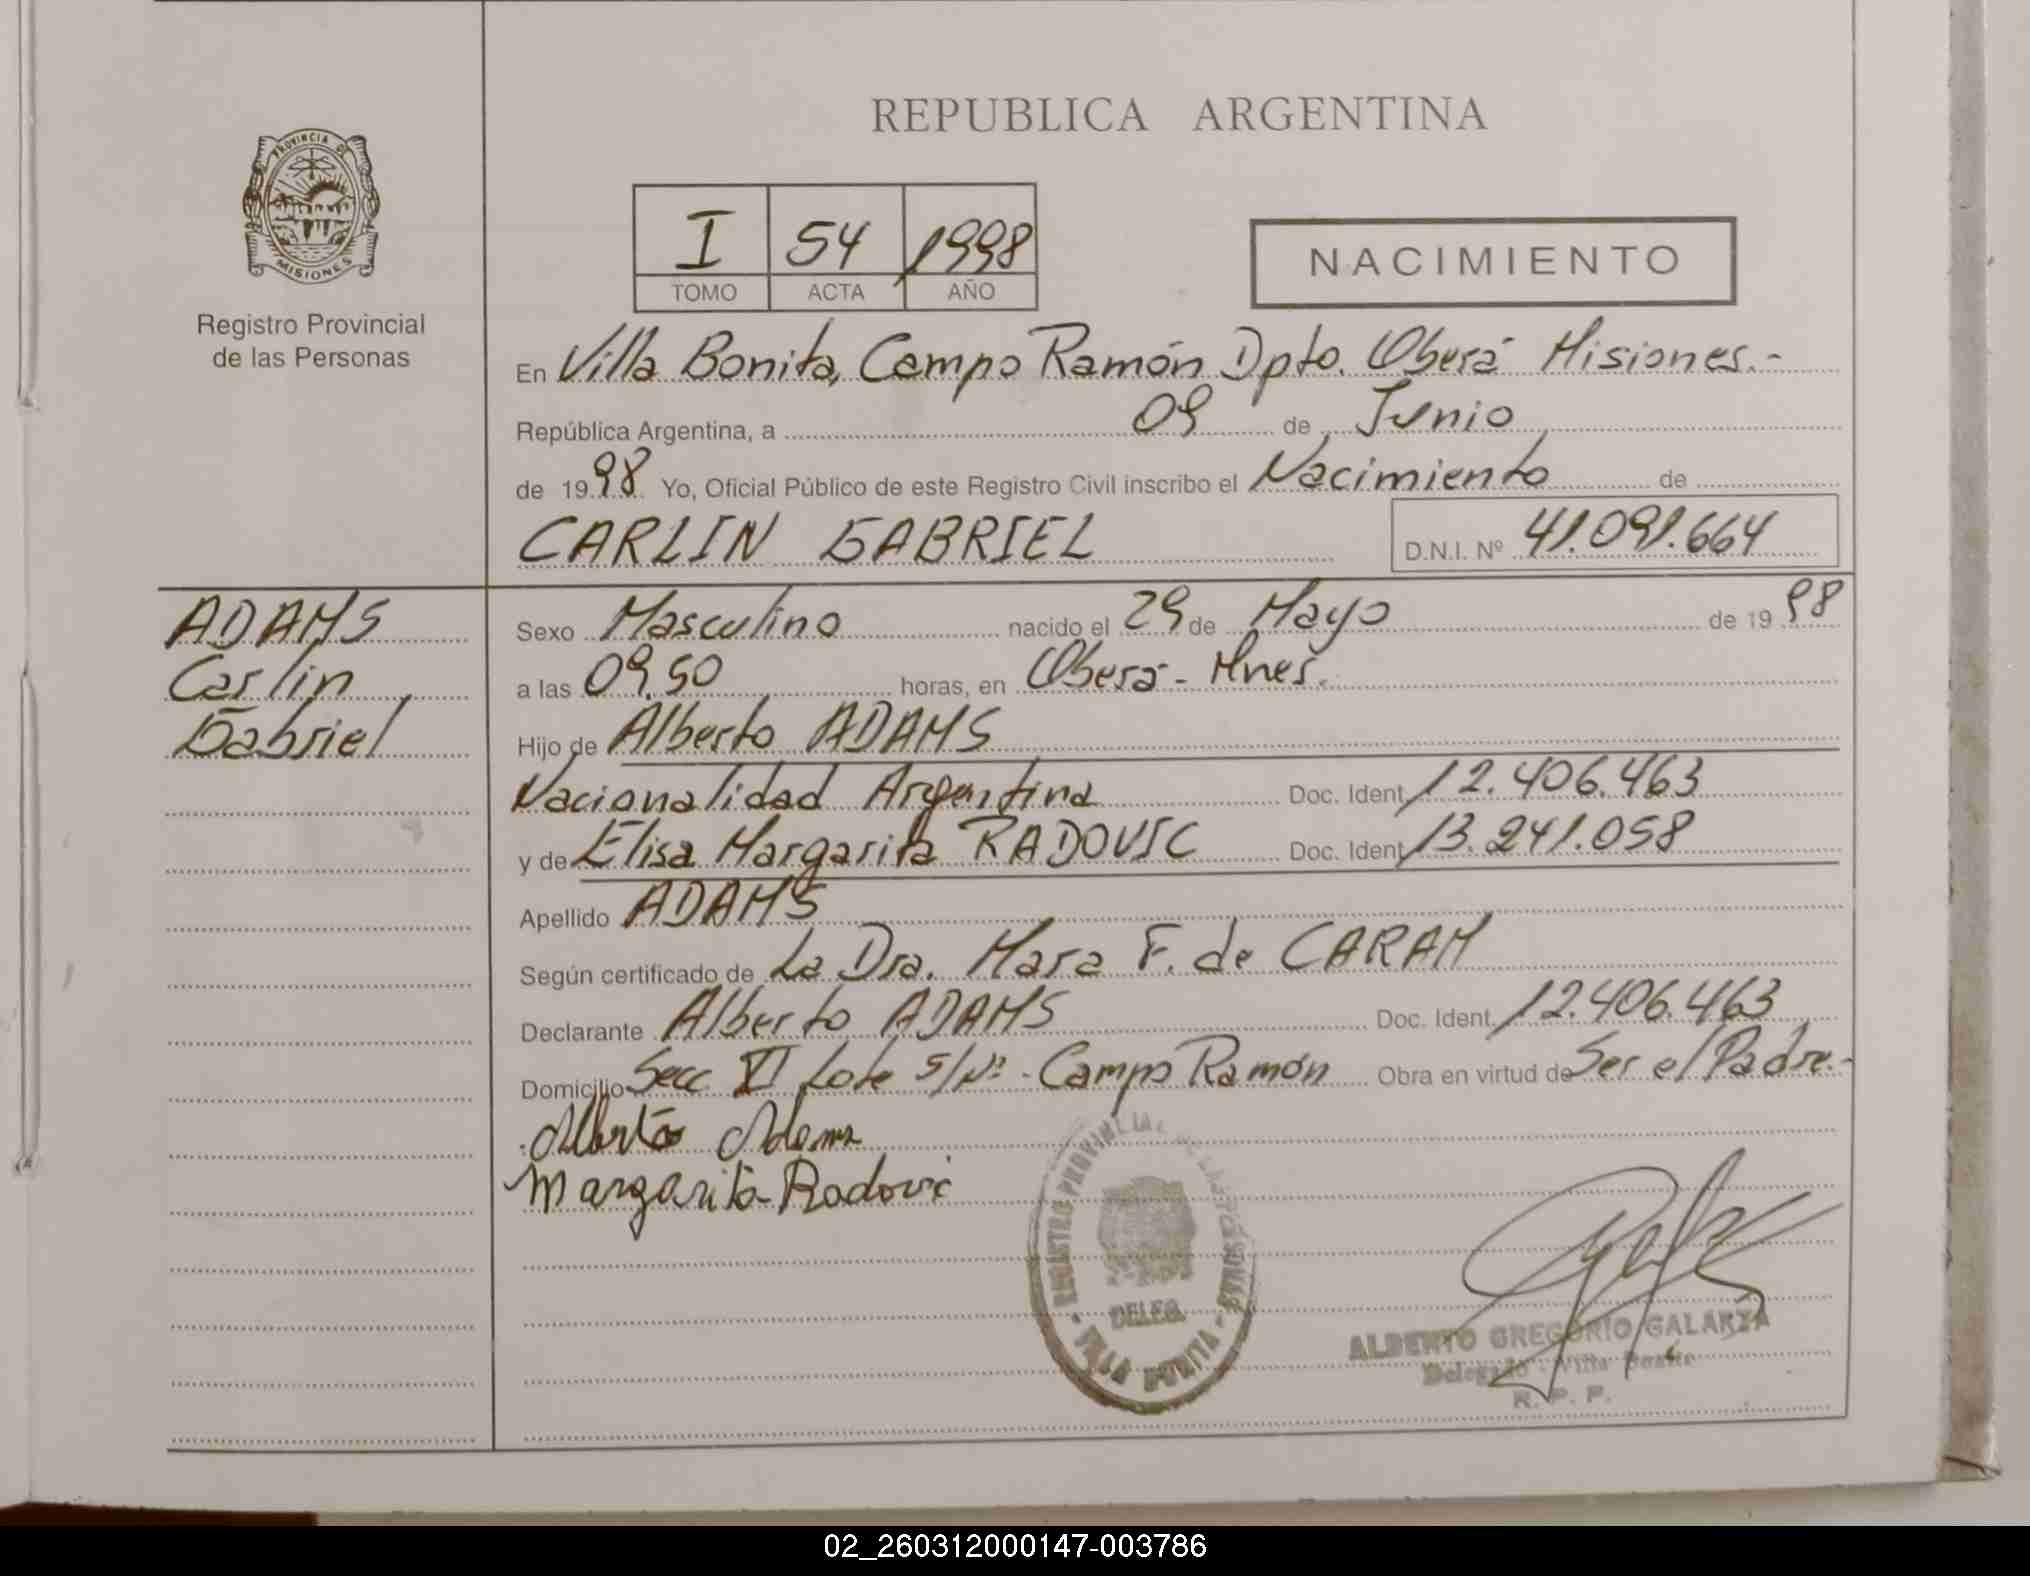 REPUBLICA ARGENTINA
PROVINCIA DE
MISIONES
Registro Provincial
de las Personas
I 54 1998
TOMO ACTA AÑO
NACIMIENTO
En Villa Bonita, Campo Ramón Dpto. Oberá Misiones.-
República Argentina, a 09 de Junio
de 1998 Yo, Oficial Público de este Registro Civil inscribo el Nacimiento de
CARLIN GABRIEL D.N.I. Nº 41.091.664
ADAMS
Carlin
Gabriel
Sexo Masculino nacido el 29 de Mayo de 1998
a las 09,50 horas, en Oberá - Mnes.
Hijo de Alberto ADAMS
Nacionalidad Argentina Doc. Ident 12.406.463
y de Elisa Margarita RADOVIC Doc. Ident 13.241.058
Apellido ADAMS
Según certificado de La Dra. Mara F. de CARAM
Declarante Alberto ADAMS Doc. Ident. 12.406.463
Domicilio Secc VI Lote S/Nº - Campo Ramón Obra en virtud de Ser el Padre.-
Alberto Adams
Margarita Radovic
REGISTRO PROVINCIAL DE LAS PERSONAS
DELEG.
VILLA BONITA
ALBERTO GREGORIO GALARZA
Delegado - Villa Bonita
R. P. P.
02_260312000147-003786